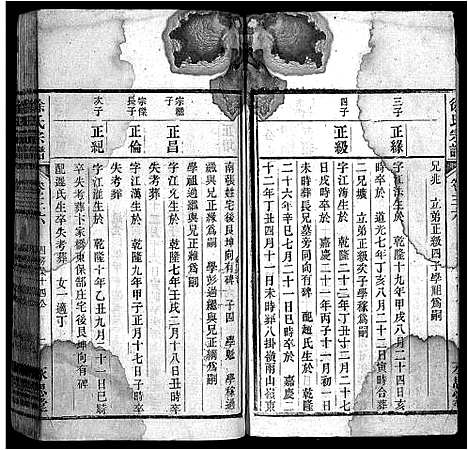 徐氏宗譜
兄兆 立弟正級四子學 為嗣
三子
正綠
字江 生於 乾隆十九年甲戌八月二十四日亥
時卒於 道光七年丁亥八月二十二日寅時合葬
二兄壙 立弟正級次子學稼為嗣
四子
正級
字江 生於 乾隆二十二年丁丑二月二十七
日戌時卒於 嘉慶二十一年丙子十一月初一日
未時葬長兄墓旁同向有碑 配趙氏生於 乾隆
二十六年辛巳七月二十一日 時卒於 嘉慶二
十二年丁丑四月十一日未時葬八掛嶺南山嶺東
南張姓宅後艮坤向有碑 子四 學魁 學稼過
繼與兄正綠為嗣 學彭過繼與兄正綱為嗣
學 過繼與兄正 為嗣
宗 子
正昌
字江 生於 乾隆七年壬戌二月十八日丑時卒
失考葬
宗傑長子
正倫
字江漢生於 乾隆九年甲子正月十七日子時卒
失考葬
次子
正紀
字江淮生於 乾隆十年乙丑九月二十一日巳時
卒失考葬 家橋東保邵庄宅後艮坤向有碑
配 氏生卒失考葬 女一適丁
徐氏宗譜